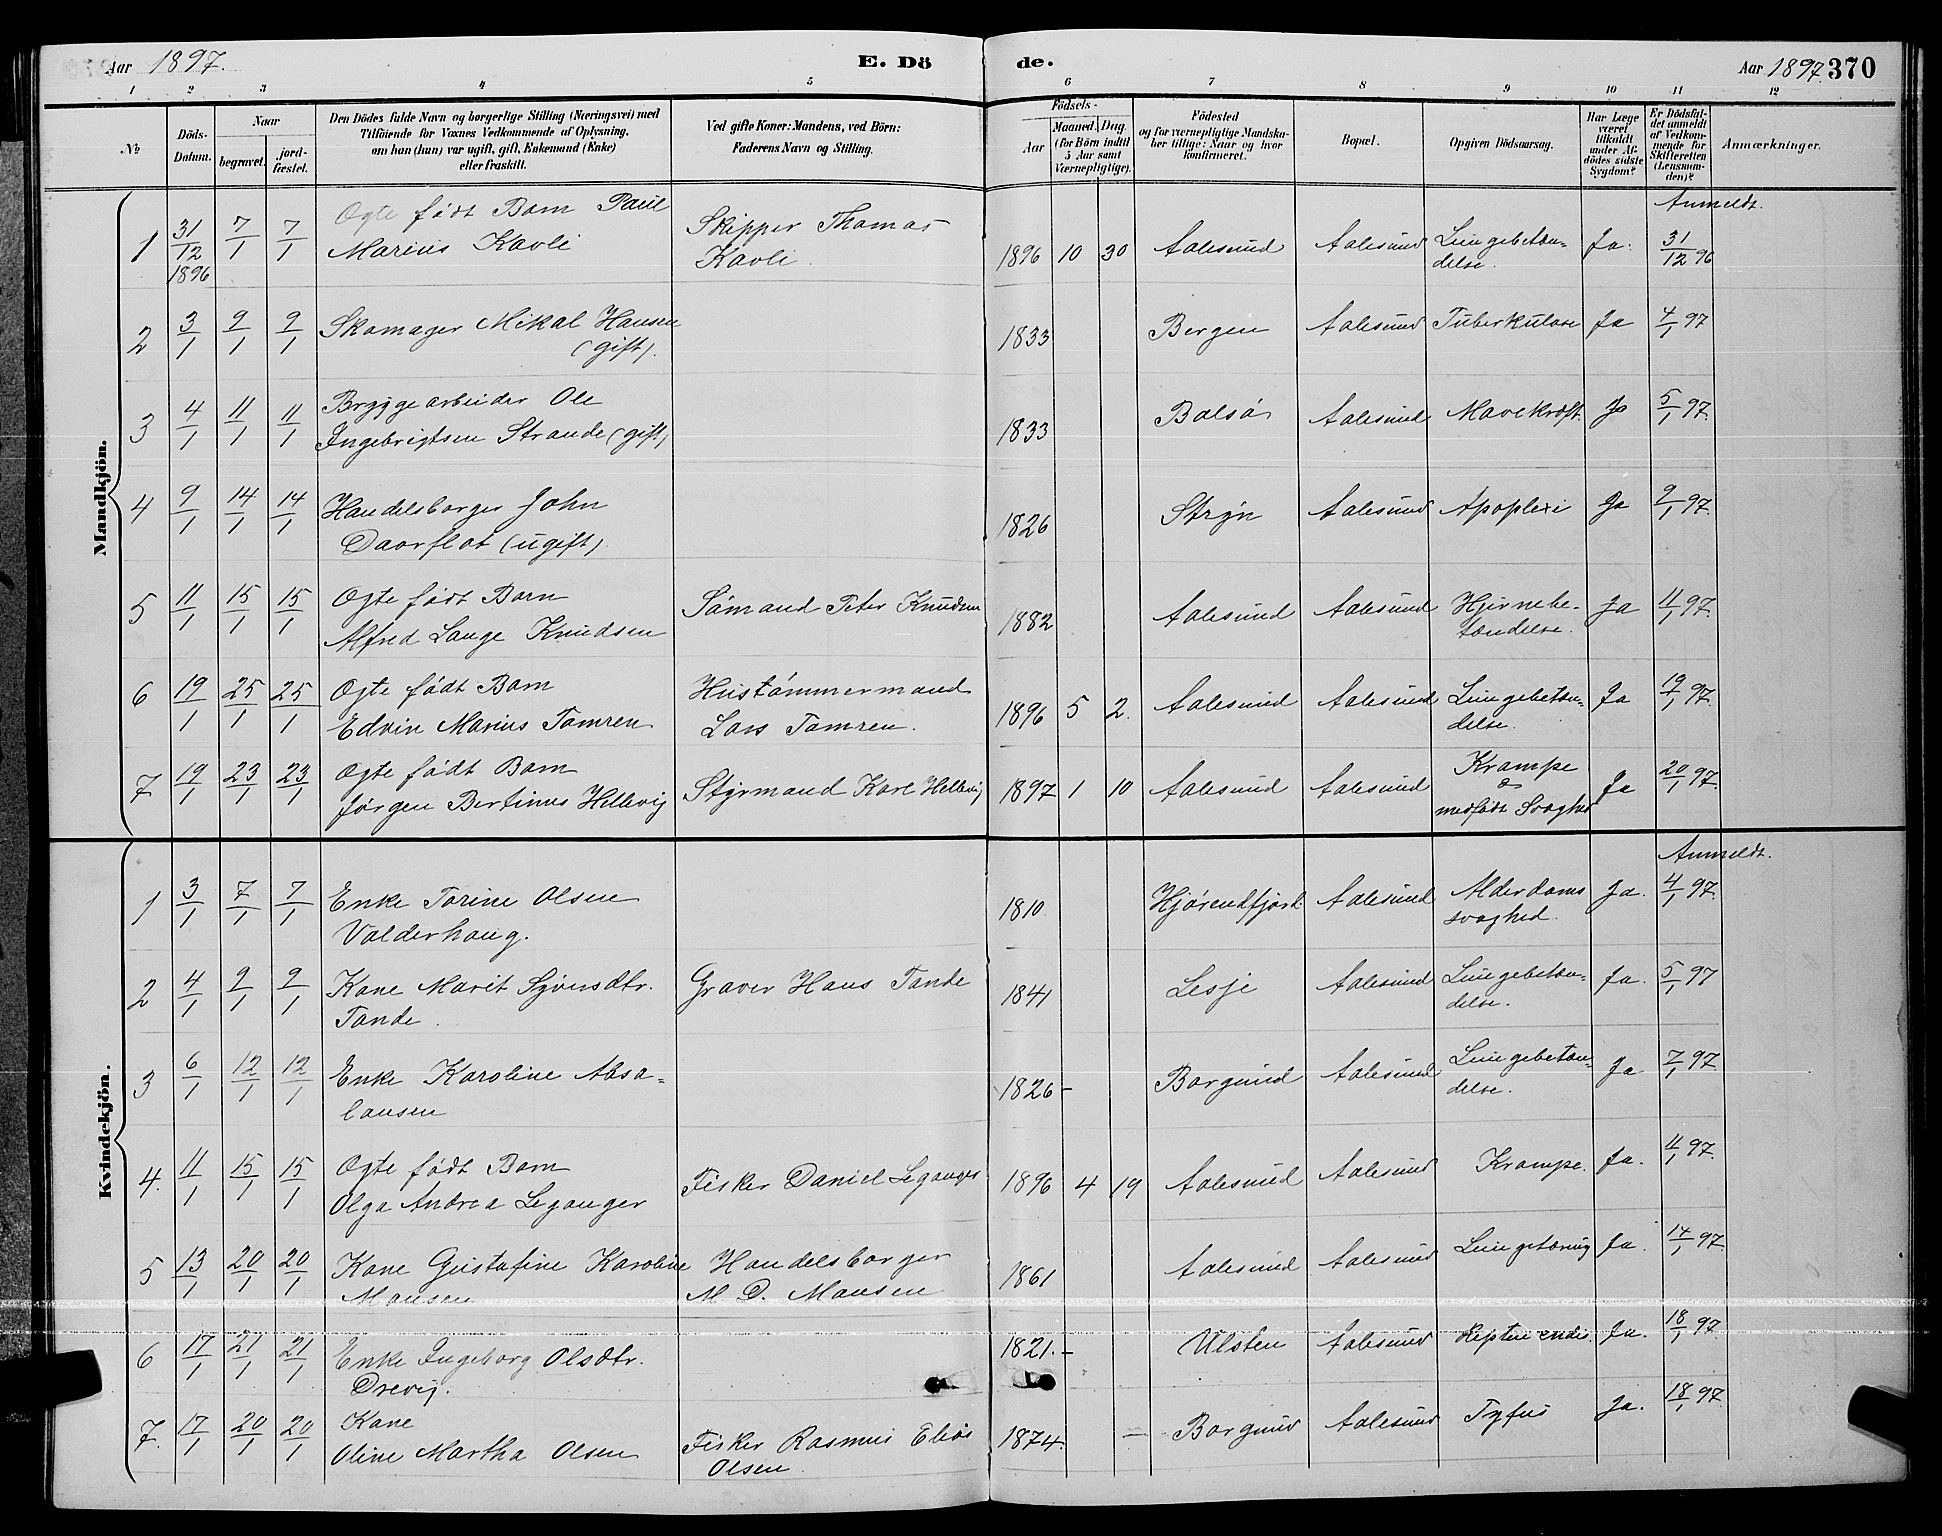 Aar 1897.
E. Dö de.
Aar 1897. 370
1 2 3 4 5 6 7 8 9 10 11 12
№
Döds-Datum.
Naar
begravet.
jord-fæstet.
Den Dödes fulde Navn og borgerlige Stilling (Næringsvei) med
Tilföiende for Voxnes Vedkommende af Oplysning,
om han (hun) var ugift, gift, Enkemand (Enke)
eller fraskilt.
Ved gifte Koner: Mandens, ved Börn:
Faderens Navn og Stilling.
Födsels-
Aar
Maaned. Dag
(for Börn indtil
5 Aar samt
Værnepligtige).
Födested
og for værnepligtige Mandska-
ber tillige: Naar og hvor
konfirmeret.
Bopæl.
Opgiven Dödsaarsag.
Har Læge
været
tilkaldt
under Af-
dödes sidste
Sygdom?
Er Dödsfal-
det anmeldt
af Vedkom-
mende for
Skifteretten
(Lensman-
den)?
Anmærkninger.
Mandkjön.
Anmeldt.
1 31/12 1896 7/1 7/1 Ægte født Barn Paul
Marius Kavli Skipper Thomas
Kavli. 1896 10 30 Aalesund Aalesund Lungebetæn-
delse. Ja. 31/12 96
2 3/1 9/1 9/1 Skomager Mikal Hansen
(gift). 1833 Bergen Aalesund Tuberkulose Ja 4/1 97
3 4/1 11/1 11/1 Bryggearbeider Ole
Ingebrigtsen Strande (gift) 1833 Bolsø Aalesund Mavekræft. Ja 5/1 97.
4 9/1 14/1 14/1 Handelsborger John
Daorflot (ugift). 1826 Stryn Aalesund Apoplexi Ja 9/1 97.
5 11/1 15/1 15/1 Ægte født Barn
Alfred Lange Knudsen Sømand Peter Knudsen 1882 Aalesund Aalesund Hjernebe-
tændelse. Ja 11/1 97.
6 19/1 25/1 25/1 Ægte født Barn
Edvin Marius Tomren Hustømmermand
Lars Tomren. 1896 5 2. Aalesund Aalesund Lungebetæn-
delse. Ja 19/1 97.
7 19/1 23/1 23/1 Ægte født Barn
Jørgen Bertinus Hellevig Styrmand Karl Hellevig 1897 1 10 Aalesund Aalesund Krampe
&
medfødt Svaghed Ja 20/1 97.
Kvindekjön.
Anmeldt.
1 3/1 7/1 7/1 Enke Torine Olsen
Valderhaug. 1810. Hjørendfjord Aalesund Alderdoms
svaghed. Ja. 4/1 97.
2 4/1 9/1 9/1 Kone Marit Syversdtr.
Tande. Graver Hans Tande 1841 Lesje Aalesund Lungebetæn-
delse. Ja. 5/1 97
3 6/1 12/1 12/1 Enke Karoline Absa-
lonsen 1826- Borgund Aalesund Lungebetæn-
delse. Ja 7/1 97
4. 11/1 15/1 15/1 Ægte født Barn
Olga Andrea Leganger Fisker Daniel Leganger 1896 4 19 Aalesund Aalesund Krampe. Ja. 11/1 97.
5 13/1 20/1 20/1 Kone Gustafine Karoline
Monsen Handelsborger
M. D. Monsen 1861 Aalesund Aalesund Lungetæring Ja. 14/1 97.
6 17/1 21/1 21/1 Enke Ingeborg Olsdtr.
Drevig. 1821.- Ulsten Aalesund Ja. 18/1 97
7. 17/1 20/1 20/1 Kone
Oline Martha Olsen Fisker Rasmus Elias
Olsen. 1874. - Borgund Aalesund Tyfus Ja. 18/1 97.